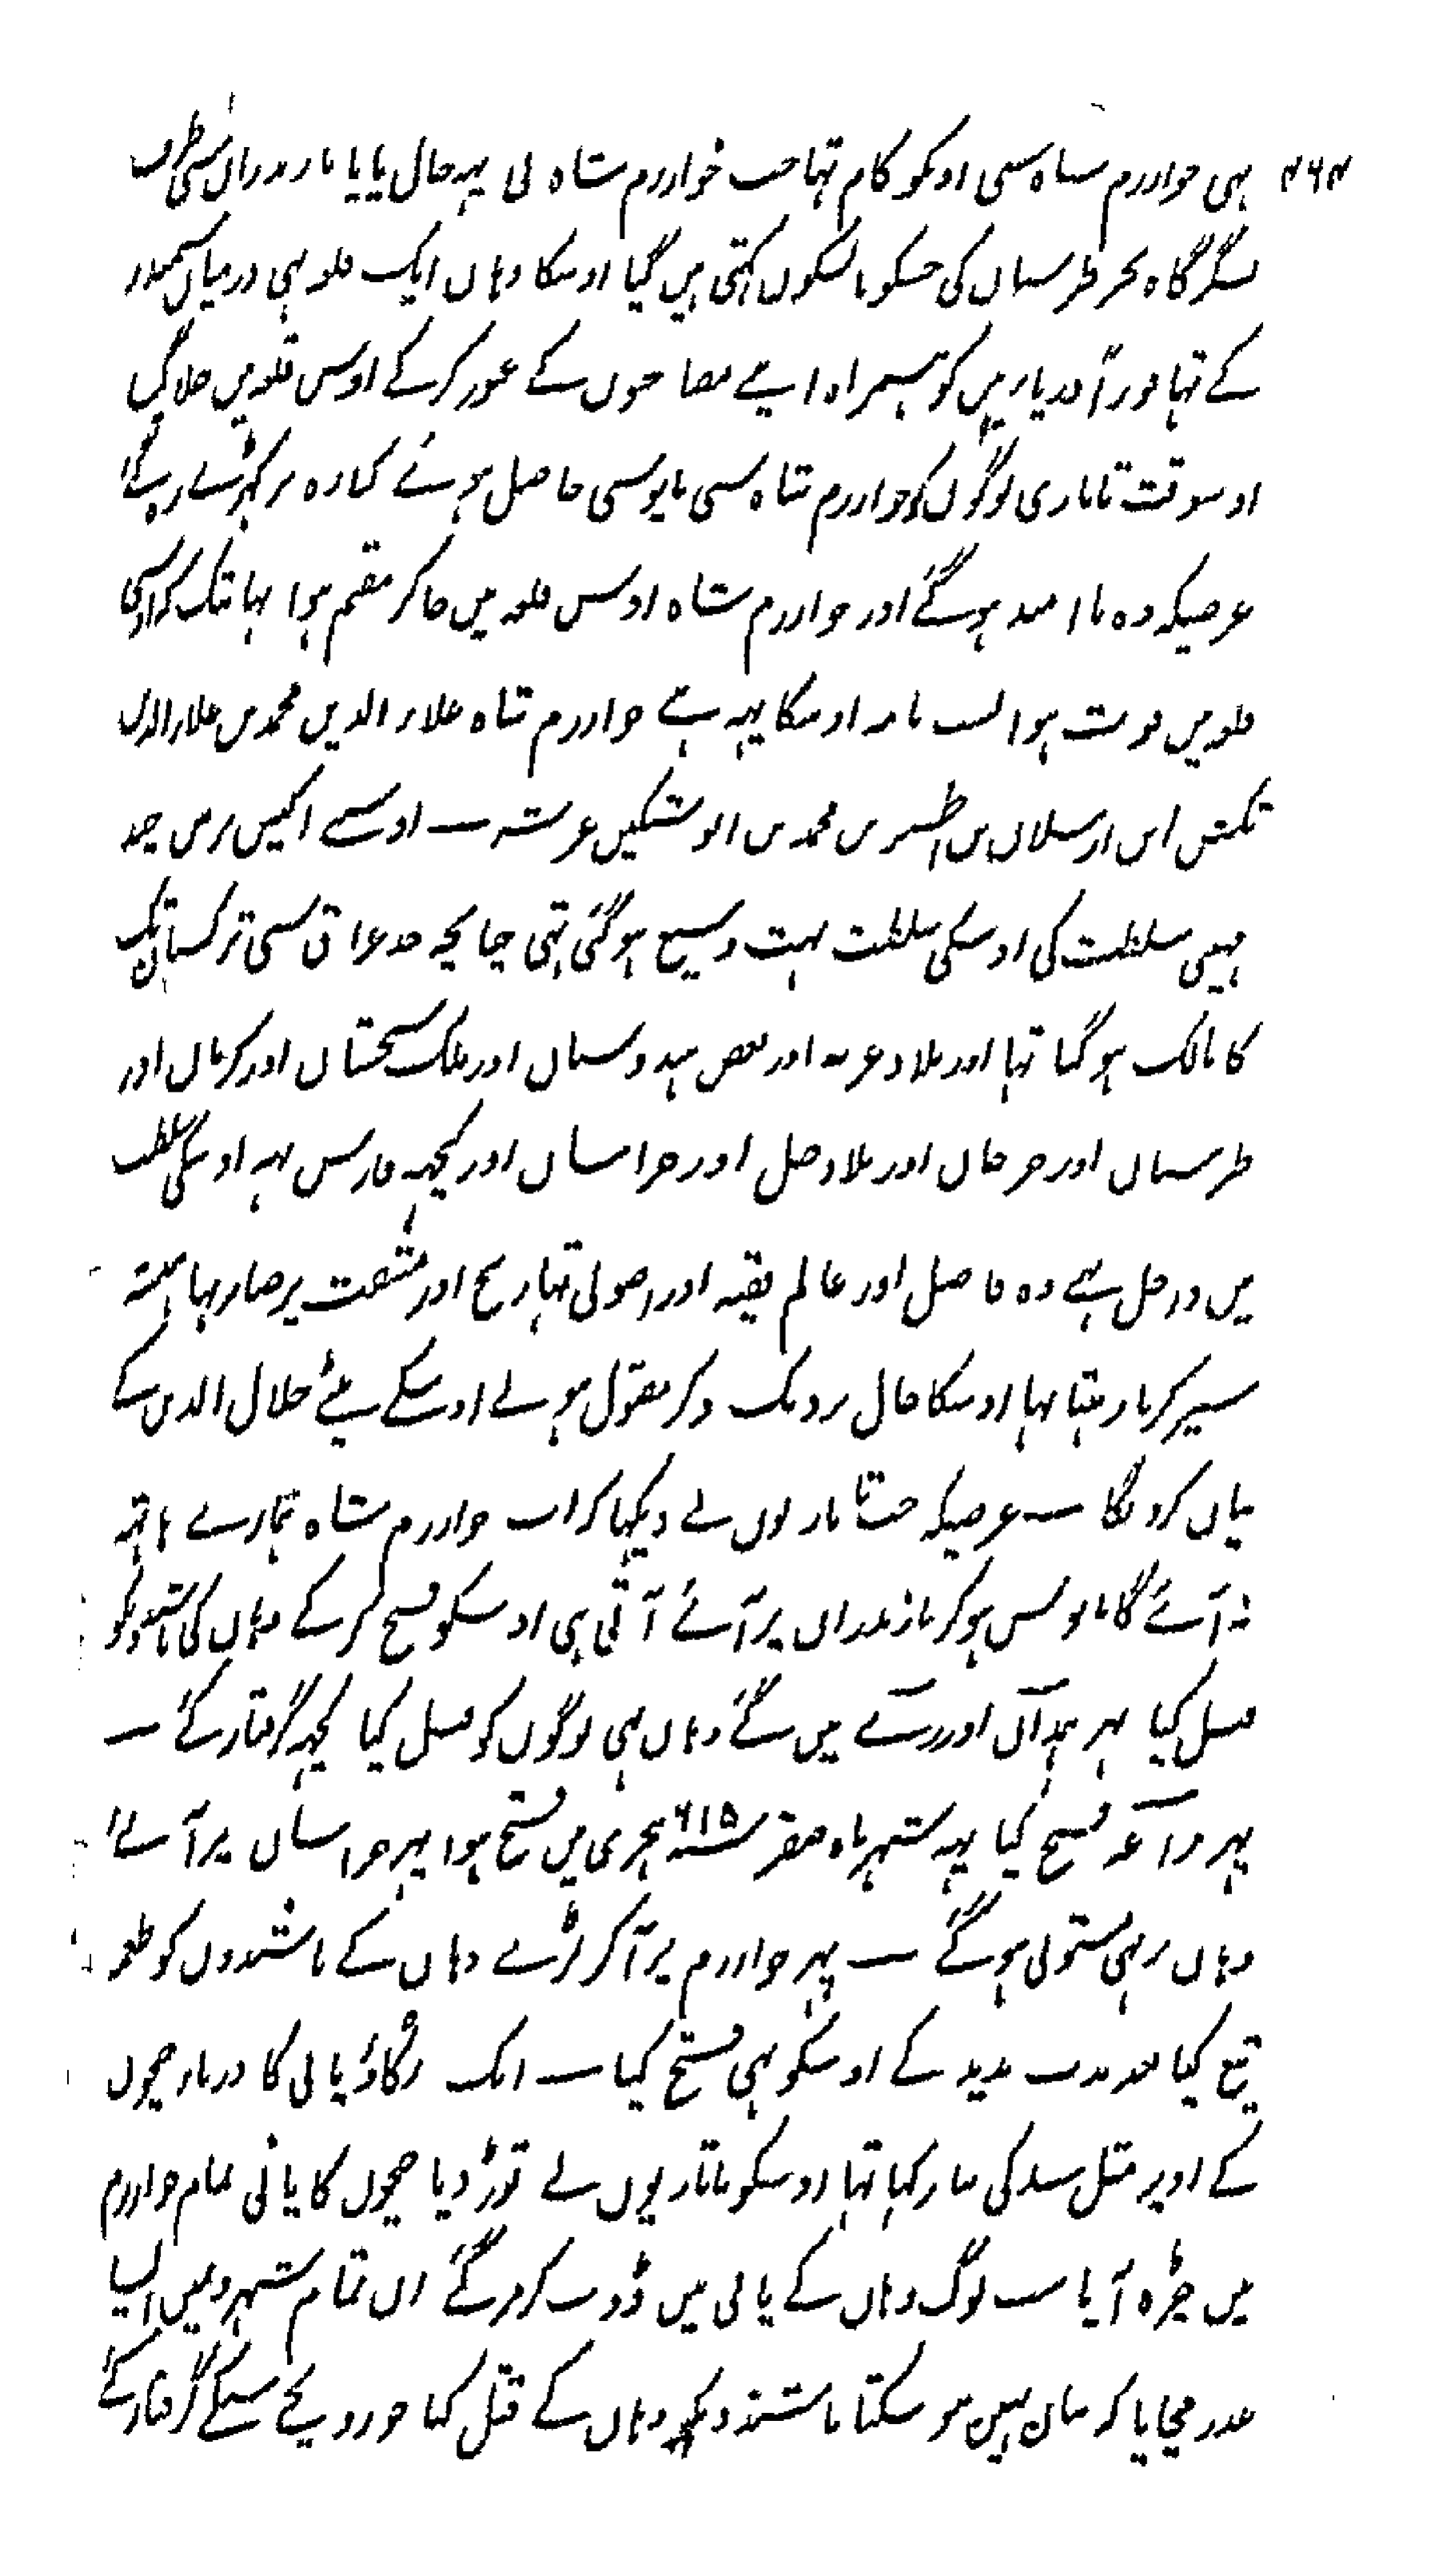 ۴۶۴ ہی خوارزم شاہ سی اونکو کام تہا جب خوارزم شاہ نی یہہ حال پایا مازندران سی طرف
لنگرگاہ بحر طبرستان کی جسکو باسکون کہتی ہیں گیا اوسکا وہاں ایک قلعہ ہی درمیان سمندر
کے تہا فوراً دریا میں کو ہمراہ اپنے مصاحبوں کے عبور کرکے اوس قلعہ میں چلا گیا
اوسوقت تاتاری لوگوں کو خوارزم شاہ سی مایوسی حاصل ہوئے کنارہ پر کہڑے رہے گئے
غرضیکہ وہ نا امید ہوگئے اور خوارزم شاہ اوس قلعہ میں جاکر مقیم ہوا یہانتک کہ اوسی
قلعہ میں فوت ہوا نسب نامہ اوسکا یہہ ہے خوارزم شاہ علاء الدین محمد بن علاء الدین
تکش ابن ارسلان بن اطسز بن محمد بن انوشتکین غرشہ — اوسے اکیس برس چند
مہینی سلطنت کی اوسکی سلطنت بہت وسیع ہوگئی تہی چنانچہ حد عراق سی ترکستان تک
کا مالک ہوگیا تہا اور بلاد غزنہ اور بعض ہندوستان اور ملک سجستان اور کرمان اور
طبرستان اور جرجان اور بلاد جبل اور خراسان اور کچہہ فارس یہہ اوسکی سلطنت
میں داخل ہے وہ فاضل اور عالم فقیہ اور اصولی تہا رنج اور مشقت پر صابر تہا ہمیشہ
سیر کرتا رہتا تہا اوسکا حال نزدیک ذکر مقتول ہونے اوسکے بیٹے جلال الدین کے
بیاں کرونگا — غرضیکہ جب تاتاریوں نے دیکہا کہ اب خوارزم شاہ ہمارے ہاتہہ
نہ آئے گا مایوس ہوکر مازندراں پر آئے آتی ہی اوسکو فتح کرکے وہاں کی باشندونکو
قتل کیا پہر ہمدان اور رے میں گئے وہاں بہی لوگوں کو قتل کیا کچہہ گرفتار کئے —
پہر مراغہ فتح کیا یہہ شہر ماہ صفر سنہ ۶۱۵ ہجری میں فتح ہوا پہر خراساں پر آئے
وہاں بہی مستولی ہوگئے — پہر خوارزم پر آکر لڑے وہاں کے باشندوں کو طعمہ
تیغ کیا بعد مدت مدید کے اوسکو بہی فتح کیا — ایک رکاؤ پانی کا دریاء جیحوں
کے اوپر مثل سد کی بنا رکہا تہا اوسکو تاتاریوں نے توڑ دیا جیحوں کا پانی تمام خوارزم
میں چڑہ آیا سب لوگ وہاں کے پانی میں ڈوب کر مرگئے ان تمام شہرونمیں ایسا
غدر مچایا کہ بیان نہیں ہو سکتا باشندونکو وہاں کے قتل کیا جورو بچے سبکے گرفتار کئے